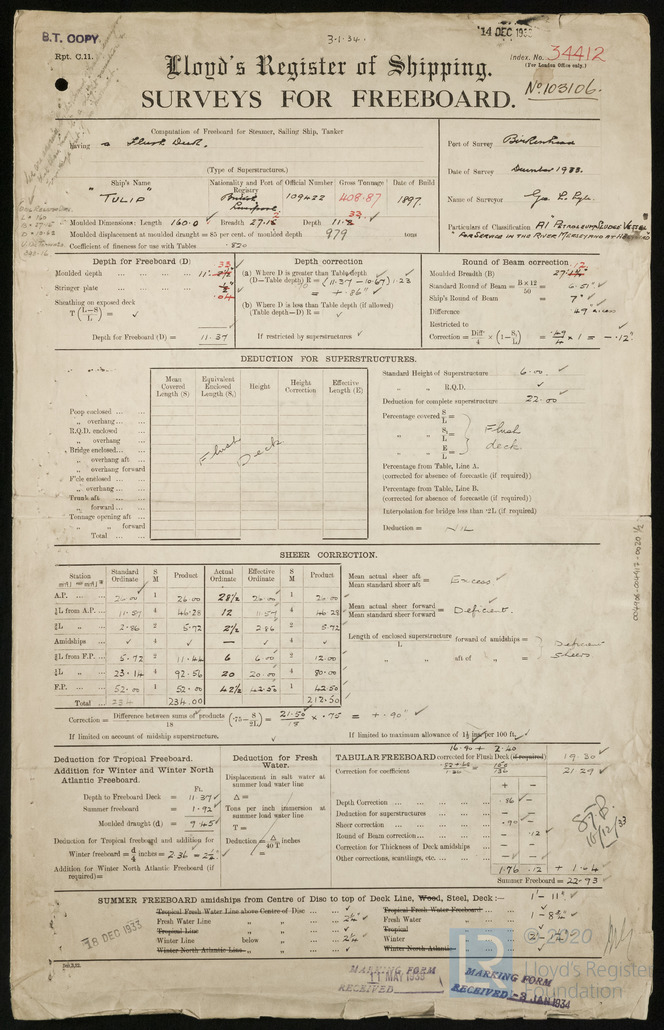 B.T. COPY.
3.1.34.
14 DEC 1933
Rpt. C.11.
Index. No. 34412
(For London Office only.)
Lloyd's Register of Shipping.
No 103106.
SURVEYS FOR FREEBOARD.
Computation of Freeboard for Steamer, Sailing Ship, Tanker
having a Flush Deck.
(Type of Superstructures.)
Port of Survey Birkenhead
Date of Survey December 1933.
Name of Surveyor Geo. L. Pyle.
Particulars of Classification A1 "Petroleum Lodge Vessel"
"For service in the River Mersey
Ship's Name Nationality and Port of Registry Official Number Gross Tonnage Date of Build
"TULIP" British Liverpool 109422 408.87 1897.
Moulded Dimensions: Length 160.0 Breadth 27.15 Depth 11.
Moulded displacement at moulded draught = 85 per cent. of moulded depth 979 tons
Coefficient of fineness for use with Tables .870
Depth for Freeboard (D)
Moulded depth ... 11.
Stringer plate ... .04
Sheathing on exposed deck
T (L–S / L) =
Depth for Freeboard (D) = 11.37
Depth correction
(a) Where D is greater than Table depth
(D–Table depth) R = (11.37 – 10.67) 1.23
= + .86"
(b) Where D is less than Table depth (if allowed)
(Table depth–D) R =
If restricted by superstructures
Round of Beam correction.
Moulded Breadth (B) 27.
Standard Round of Beam = B×12 / 50 = 6.51"
Ship's Round of Beam = 7"
Difference .49" excess
Restricted to
Correction = Diffce / 4 × (1–S₁/L) = .49 / 4 × 1 = – .12"
DEDUCTION FOR SUPERSTRUCTURES.
Mean Covered Length (S) Equivalent Enclosed Length (S₁) Height Height Correction Effective Length (E)
Poop enclosed ...
,, overhang ...
R.Q.D. enclosed
,, overhang
Bridge enclosed...
,, overhang aft ...
,, overhang forward
F'cle enclosed ...
,, overhang ...
Trunk aft ...
,, forward ...
Tonnage opening aft ...
,, ,, forward
Total ...
Flush Deck
Standard Height of Superstructure 6.00
,, ,, R.Q.D.
Deduction for complete superstructure 22.00
Percentage covered S/L =
,, ,, S₁/L =
,, ,, E/L =
Flush deck.
Percentage from Table, Line A.
(corrected for absence of forecastle (if required))
Percentage from Table, Line B.
(corrected for absence of forecastle (if required))
Interpolation for bridge less than .2L (if required)
Deduction = NIL
SHEER CORRECTION.
Station Standard Ordinate S M Product Actual Ordinate Effective Ordinate S M Product
A.P. ... 26.00 1 26.00 28½ 26.00 1 26.00
⅙L from A.P. ... 11.57 4 46.28 12 11.57 4 46.28
⅓L ,, ... 2.86 2 5.72 2½ 2.86 2 5.72
Amidships ... 4 – 4
⅓L from F.P. ... 5.72 2 11.44 6 6.00 2 12.00
⅙L ,, ... 23.14 4 92.56 20 20.00 4 80.00
F.P. ... 52.00 1 52.00 42½ 42.50 1 42.50
Total ... 234 234.00 212.50
Mean actual sheer aft / Mean standard sheer aft = Excess
Mean actual sheer forward / Mean standard sheer forward = Deficient.
Length of enclosed superstructure / L forward of amidships =
,, ,, aft of ,, =
Deficient sheers
Correction = Difference between sums of products / 18 (.75 – S/2L) = 21.50 / 18 × .75 = + .90"
If limited on account of midship superstructure.
If limited to maximum allowance of 1½ ins. per 100 ft.
Deduction for Tropical Freeboard.
Addition for Winter and Winter North Atlantic Freeboard.
Ft.
Depth to Freeboard Deck = 11.37
Summer freeboard = 1.92
Moulded draught (d) = 9.45
Deduction for Tropical freeboard and addition for
Winter freeboard = d/4 inches = 2.36 = 2¼"
Addition for Winter North Atlantic Freeboard (if required) =
Deduction for Fresh Water.
Displacement in salt water at summer load water line
Δ =
Tons per inch immersion at summer load water line
T =
Deduction = Δ / 40T inches
=
16.90 + 2.40
TABULAR FREEBOARD corrected for Flush Deck (if required) 19.30
Correction for coefficient 21.29
+ –
Depth Correction ... .86 –
Deduction for superstructures ... – –
Sheer correction ... .90 –
Round of Beam correction ... – .12
Correction for Thickness of Deck amidships – –
Other corrections, scantlings, etc. ... – –
1.76 .12 + 1.64
Summer Freeboard = 22.93
15/12/33
SUMMER FREEBOARD amidships from Centre of Disc to top of Deck Line, Wood, Steel, Deck :— 1'– 11"
Tropical Fresh Water Line above Centre of Disc ...
Fresh Water Line ,, ,, 2¼"
Tropical Line ,, ,,
Winter Line below ,, 2¼"
Winter North Atlantic Line ,, ,,
Tropical Fresh Water Freeboard ...
Fresh Water ,, 1'– 8¾"
Tropical ,,
Winter ,,
Winter North Atlantic ,,
18 DEC 1933
MARKING FORM
11 MAY 1935
RECEIVED
MARKING FORM
RECEIVED -3 JAN 1934
004906-004917-0020 1/2
© 2020
LR
Lloyd's Register
Foundation